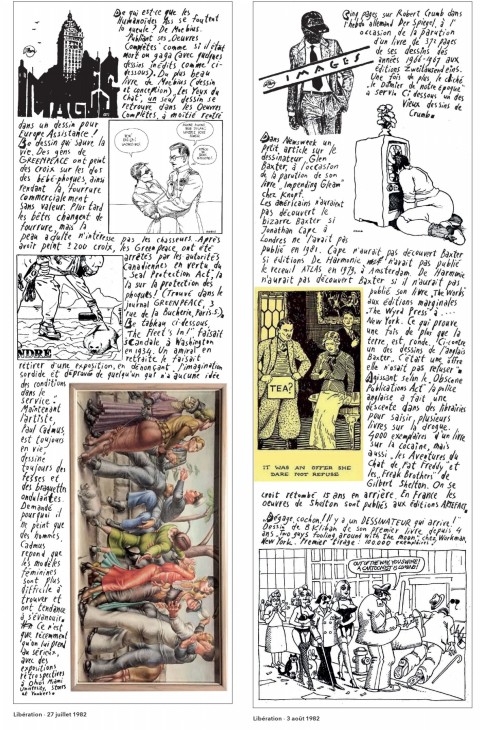 IMAGES
Qu'est-ce que les
Humanoïdes Ass se foutent
la gueule? De Moebius.
Publiant ses "Oeuvres
Complètes" comme si il était
mort ou gaga (avec quelques
dessins inédits comme ci-
dessous). Du plus beau
livre de Moebius (dessin
et conception), Les Yeux du
Chat, un seul dessin se
retrouve dans les Oeuvres
Complètes, à moitié rentré
dans un dessin pour
Europe Assistance!
Un dessin qui sauve la
vie. Des gens de
GREENPEACE ont peint
des croix sur les dos
des bébé-phoques, ainsi
rendant la fourrure
commercialement
sans valeur. Plus tard
les bêtes changent de
fourrure, mais la
peau adulte n'intéresse pas les chasseurs. Après
avoir peint ± 200 croix, les Greenpeace ont été
arrêtés par les autorités
Canadiennes en vertu du
Seal Protection Act, la
loi sur la protection des
phoques! (Trouvé dans le
journal GREENPEACE, 3
rue de la Bucherie, Paris 5).
Le tableau ci-dessous,
"The Fleet's In!" faisait
scandale à Washington
en 1934. Un amiral en
retraite le faisait
retirer d'une exposition, en dénonçant "l'imagination
sordide et dépravée de quelqu'un qui n'a aucune idée
des conditions
dans le
service".
Maintenant
l'artiste,
Paul Cadmus,
est toujours
en vie,
dessine
toujours des
fesses et
des braguettes
ondulantes.
Demandé
pourquoi il
ne peint que
des hommes,
Cadmus
répond que
les modèles
féminines
sont plus
difficile à
trouver et
ont tendance
à s'évanouir.
Ce n'est
que récemment
qu'on lui prend
au sérieux,
avec des
expositions
rétrospectives
à Ohio's Miami
University,
et Yonkers.
ANDRÉ
Libération · 27 juillet 1982
IMAGES
Cinq pages sur Robert Crumb dans
l'hebdo allemand Der Spiegel, à l'
occasion de la parution
d'un livre de 371 pages
de ses dessins des
années 1966-1967 aux
éditions Zweitausendeins.
Une fois de plus le cliché
"le Daumier de notre époque"
a servi. Ci dessous un des
vieux dessins de
Crumb.
Dans Newsweek un
petit article sur le
dessinateur, Glen
Baxter, à l'occasion
de la parution de son
livre "Impending Gleam"
chez Knopf.
Les américains n'auraient
pas découvert le
bizarre Baxter si
Jonathan Cape à
Londres ne l'avait pas
publié en 1981. Cape n'aurait pas découvert Baxter
si éditions De Harmonie n'avait pas publié
le receuil ATLAS en 1979, à Amsterdam. De Harmonie
n'aurait pas découvert Baxter si il n'aurait pas
publié son livre "The Works"
aux éditions marginales
"The Wyrd Press" à ....
New York. Ce qui prouve
une fois de plus que la
terre est ronde. Ci-contre
un des dessins de l'anglais
Baxter. "C'était une offre
elle n'osait pas refuser".
Agissant selon le "Obscene
Publications Act" la police
anglaise a fait une
descente dans des librairies
pour saisir, plusieurs
livres sur la drogue.
4000 exemplaires d'un livre
sur la cocaïne, mais
aussi, les Aventures du
Chat de Fat Freddy et
les "Freak Brothers" de
Gilbert Shelton. On se
croit retombé 15 ans en arrière. En France les
oeuvres de Shelton sont publiés aux éditions ARTEFACT.
TEA?
IT WAS AN OFFER SHE
DARE NOT REFUSE
"Dégage, cochon! Il y a un DESSINATEUR qui arrive!"
Dessin de B. Kliban de son premier livre depuis 4
ans, "Two guys fooling around with the moon", chez Workman,
New York. Premier tirage: 100.000 exemplaires.
OUT OF THE WAY, YOU SWINE!
A CARTOONIST IS COMING!
Libération · 3 août 1982